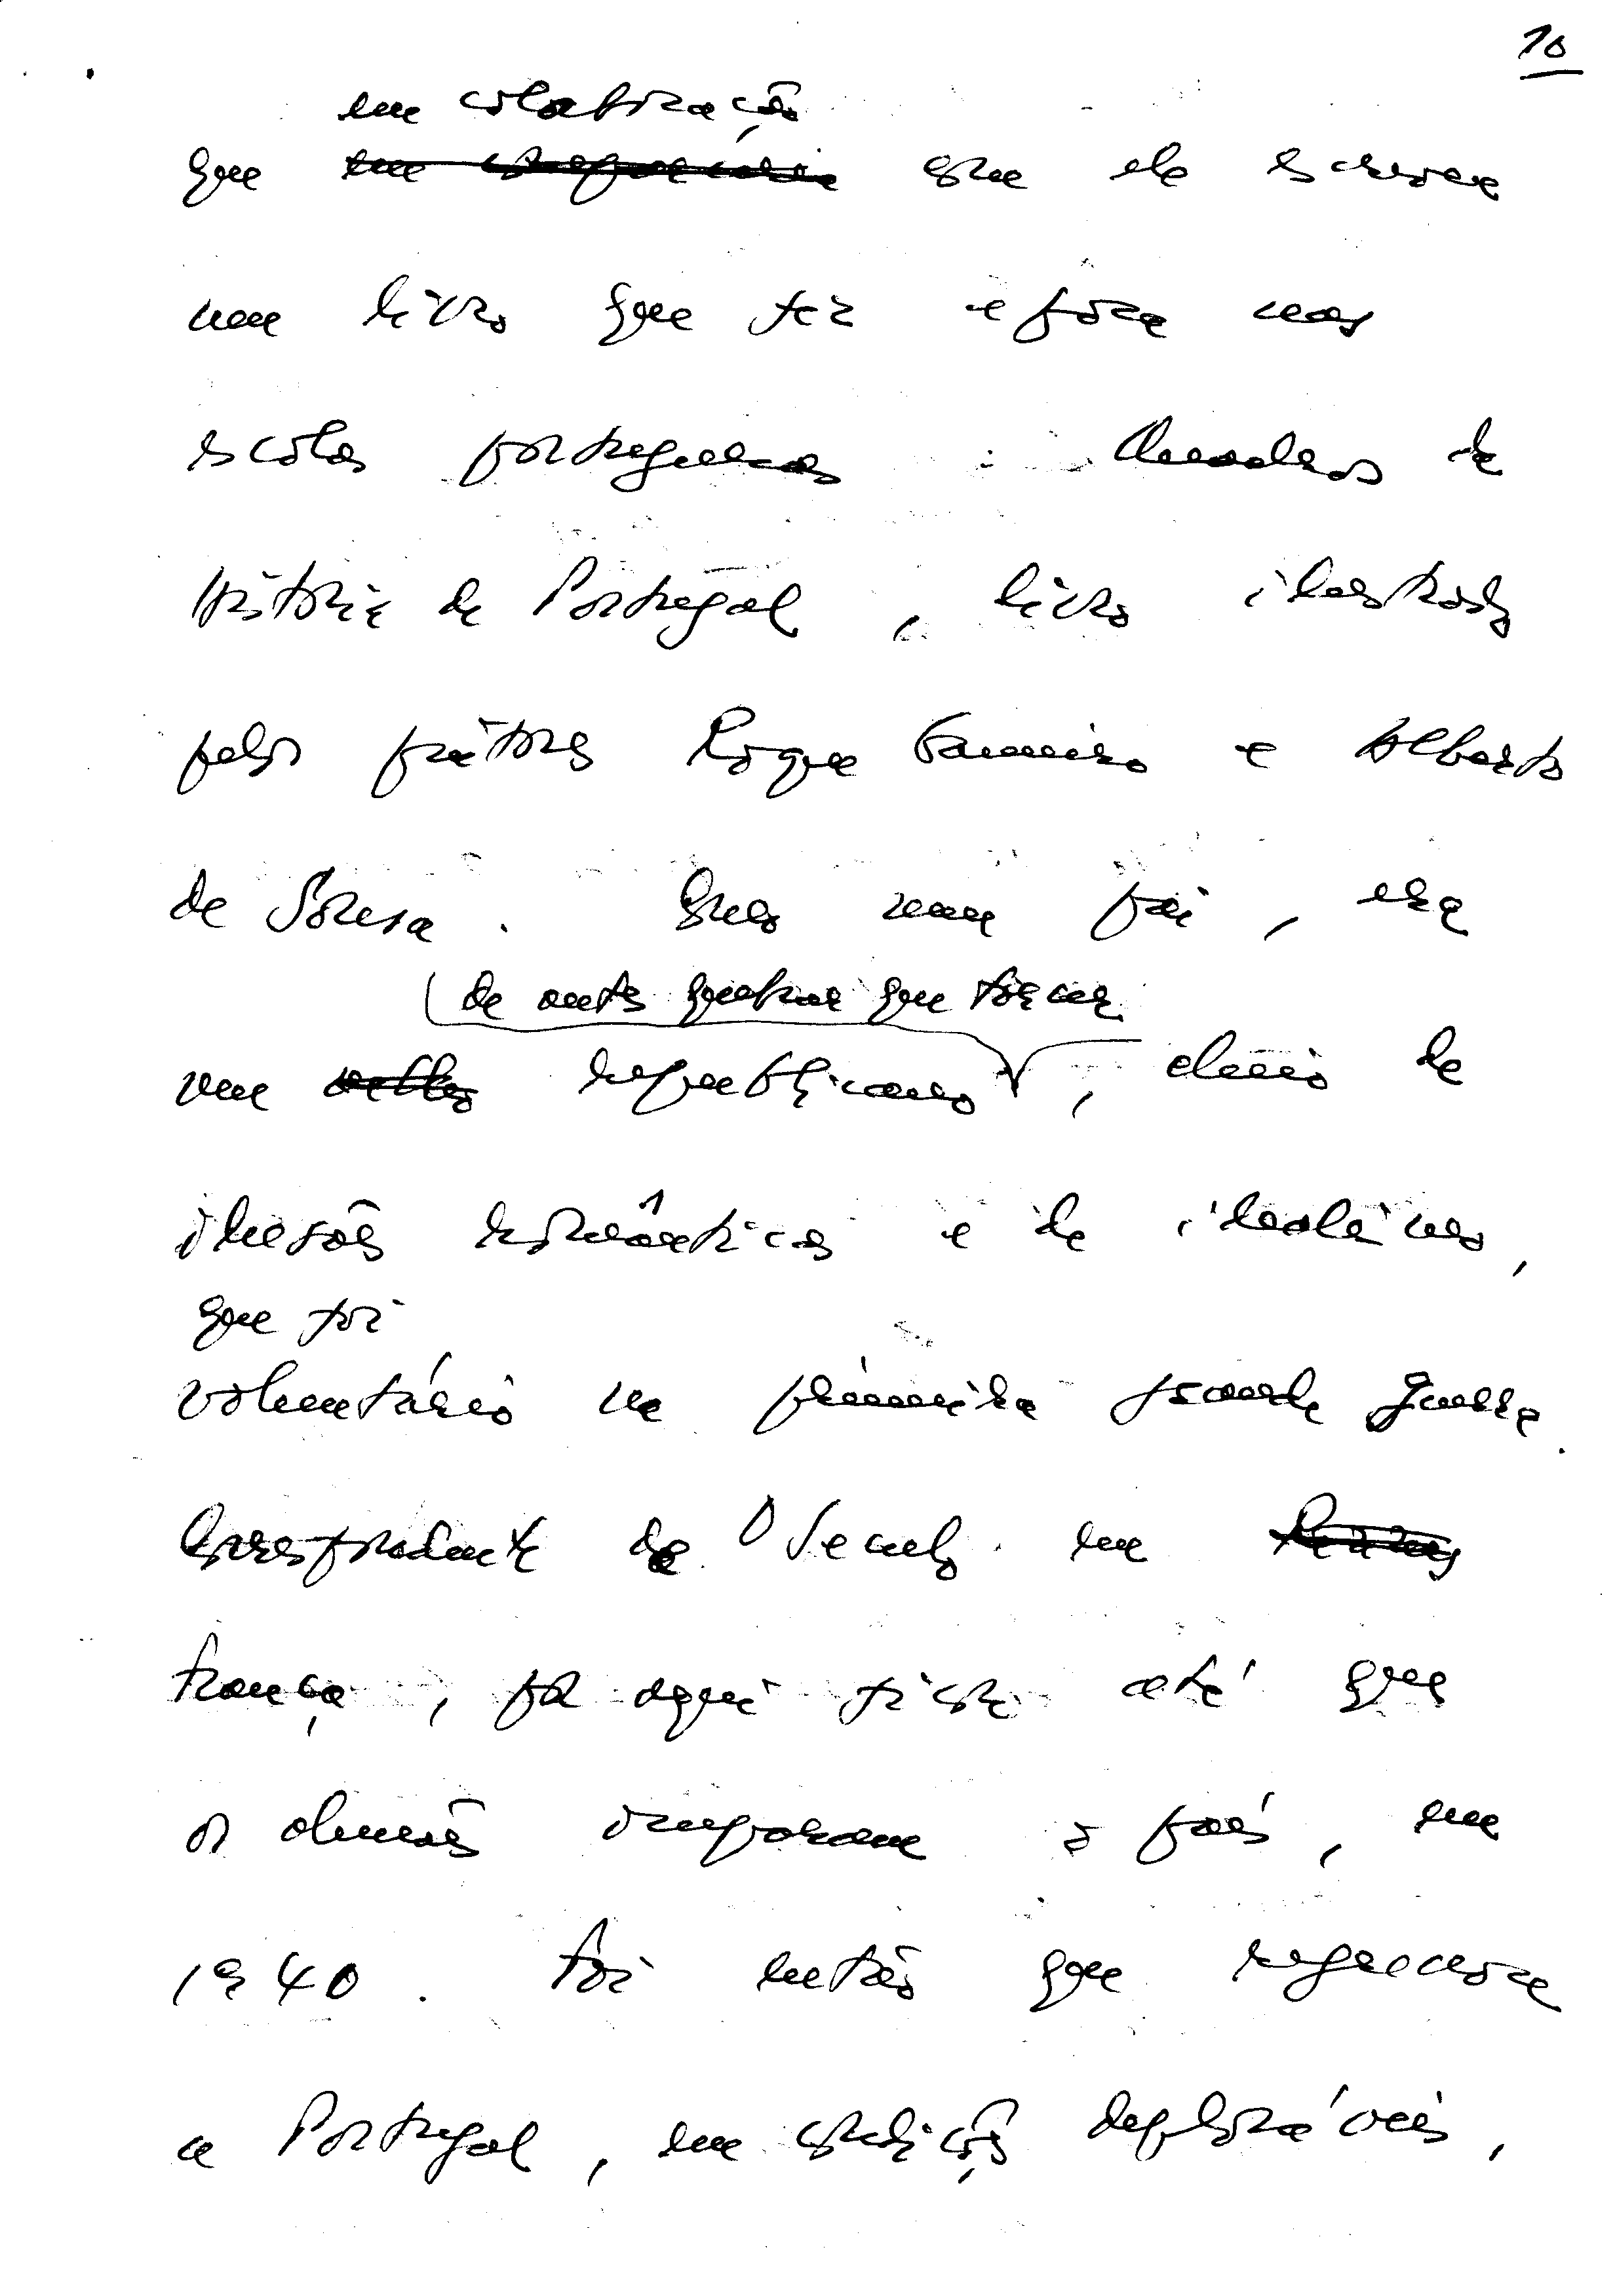 10
em colaboração
que em com ele escreveu
um livro que fez época nas
escolas portuguesas: Quadros de
História de Portugal, livro ilustrado
pelos pintores Roque Gameiro e Alberto
de Sousa. Quis meu pai, era
de antes quebrar que torcer
um velho republicano, cheio de
ilusões românticas e de idealismo,
que foi
voluntário na primeira grande guerra.
Correspondente de O Seculo em
França, por aqui ficou até que
os alemães ocuparam o país, em
1940. Foi então que regressou
a Portugal, em condições deploráveis,